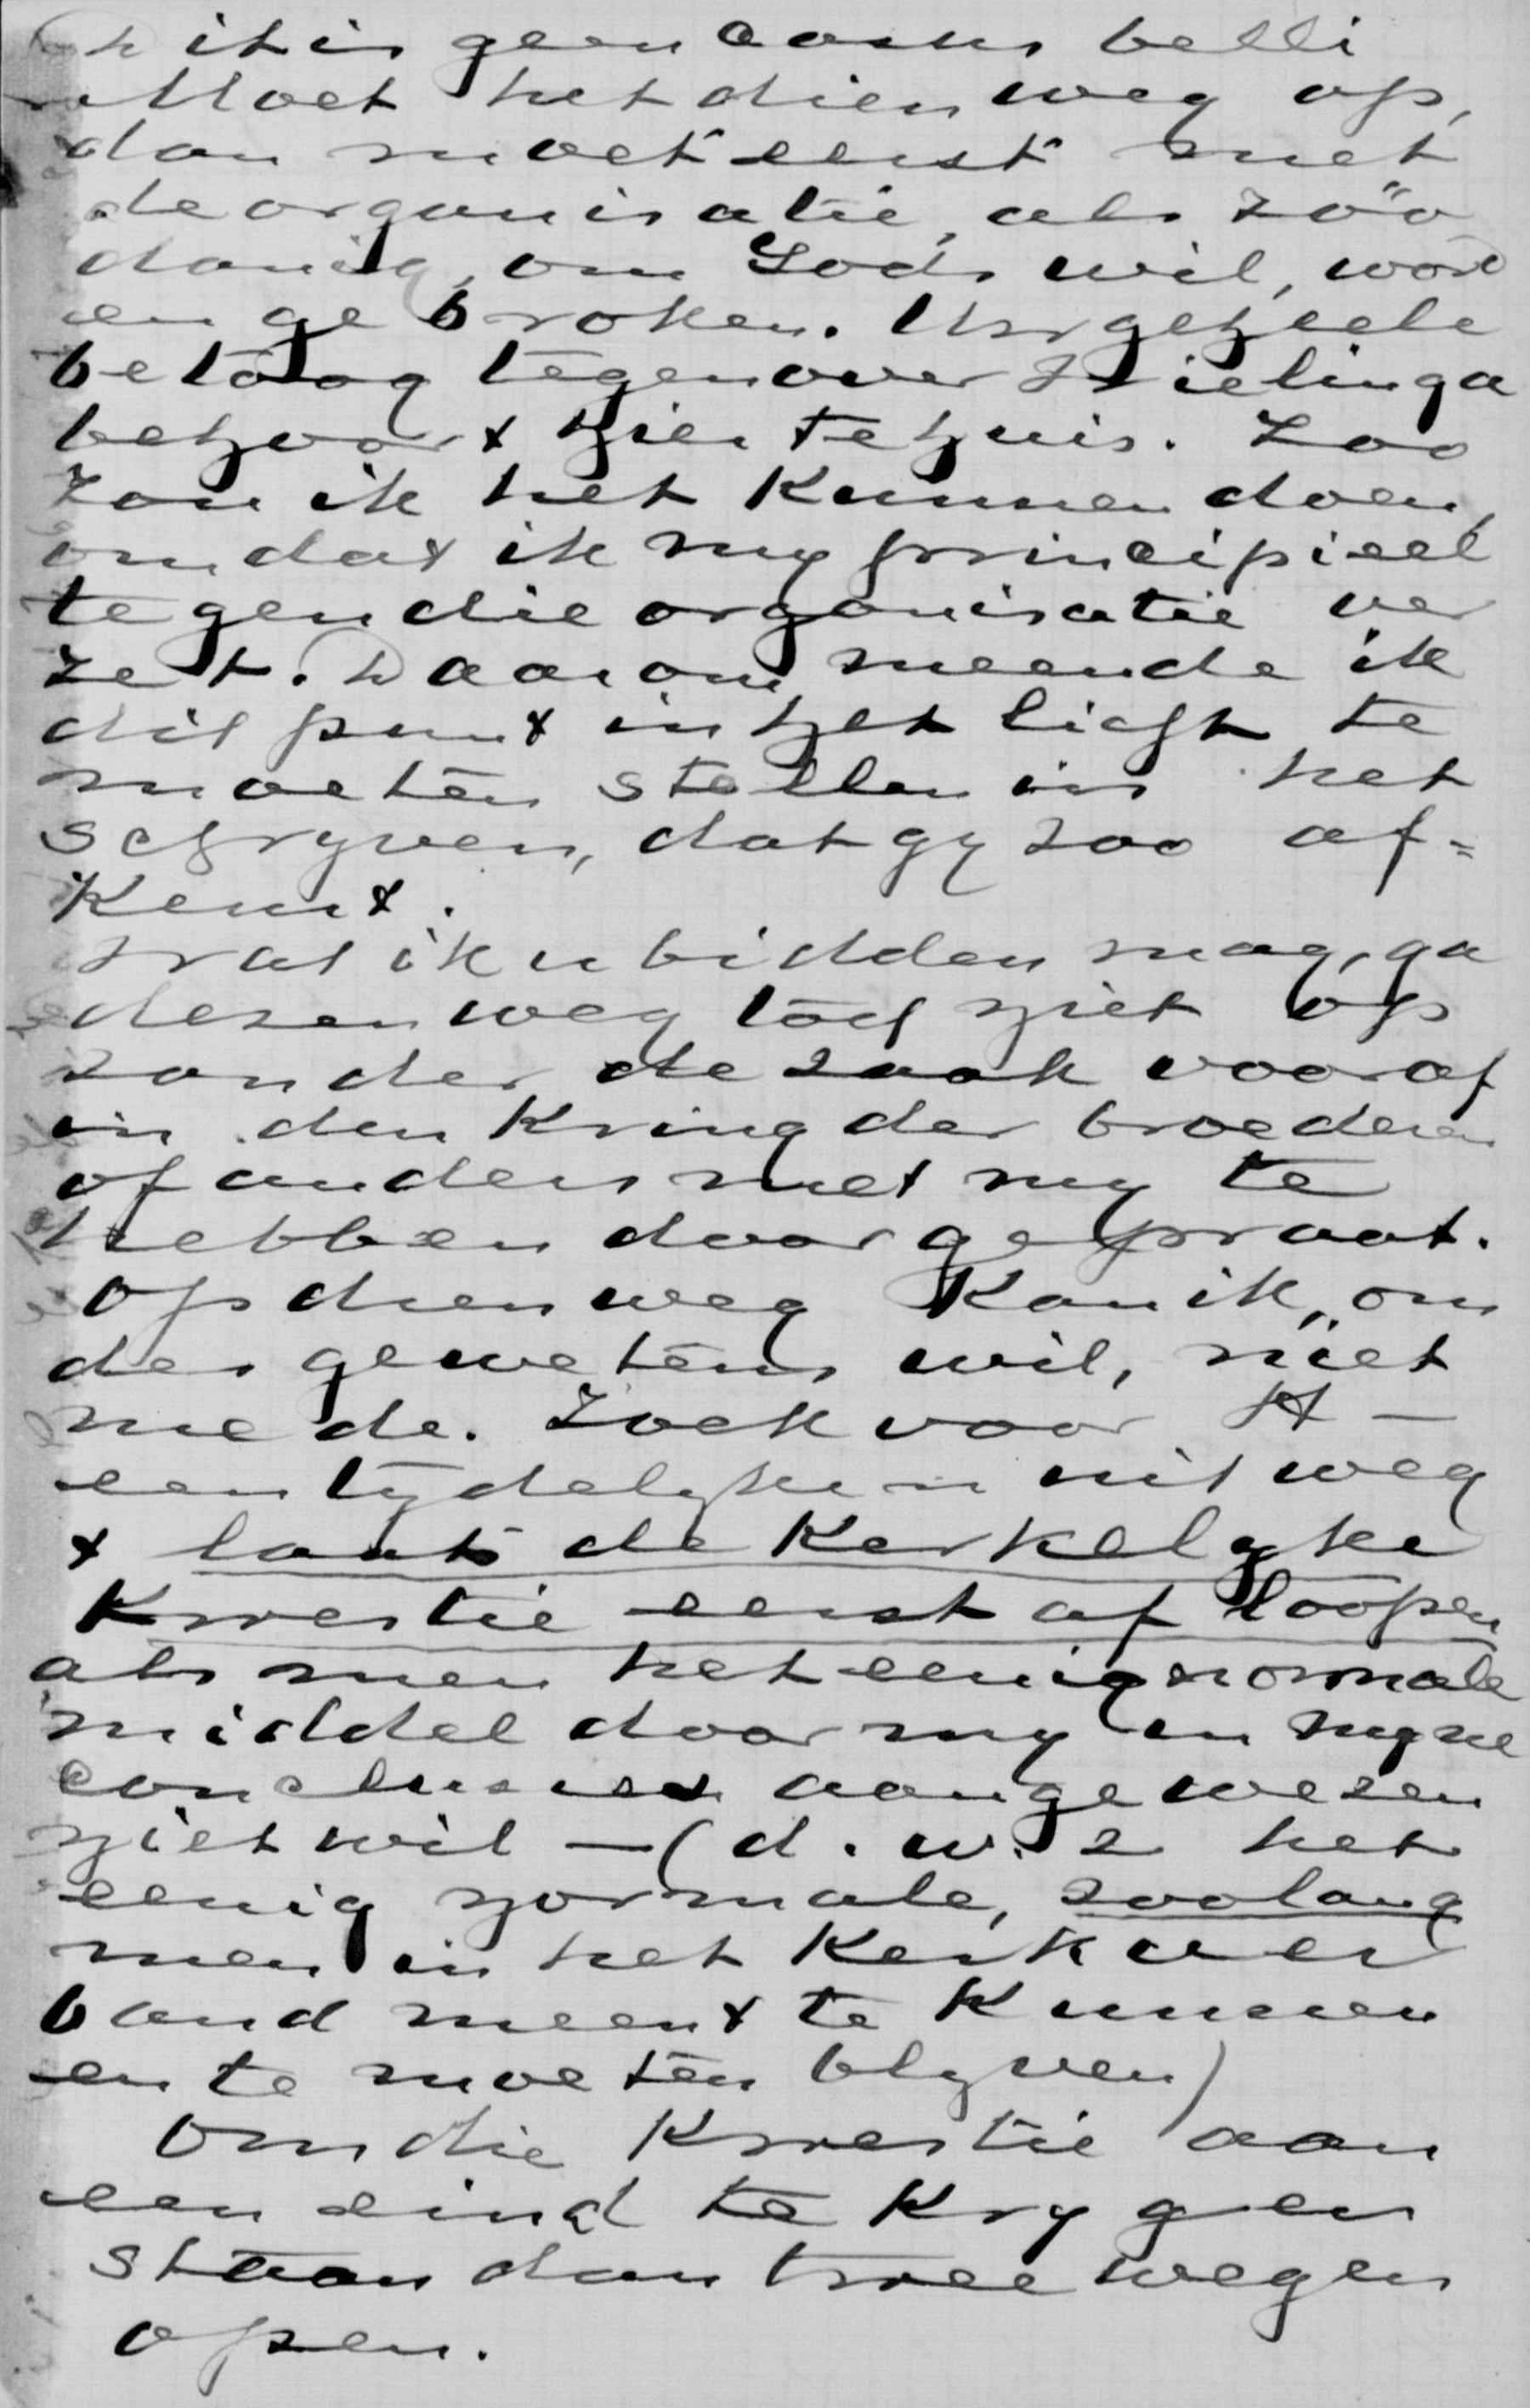 Dit is geen casus belli
Moet het dien weg op,
dan moet eerst met
de organisatie, als zóó
danig, om Gods wil, word
en gebroken. Uw geheele
betoog tegenover Wielinga
behoort hier tehuis. Zoo
zou ik het kunnen doen,
omdat ik my principieel
tegen die organisatie ver
zet. Daarom meende ik
dit punt in het licht te
moeten stellen in het
schryven, dat gy zoo af=
keurt.
Wat ik u bidden mag, ga
dezen weg toch niet op
zonder de zaak vooraf
in den kring der broederen
of anders met my te
hebben doorgepraat.
Op dien weg kan ik, om
des gewetens wil, niet
mede. Zoek voor A -
een tydelyken uitweg
& laat de Kerkelyke
Kwestie eerst afloopen
als men het eenig normale
middel door my in myne
conclusies aangewezen
niet wil - (d.w.z het
eenig normale, zoolang
men in het Kerkver
band meent te kunnen
en te moeten blyven)
Om die Kwestie aan
een eind te krygen
staan dan twee wegen
open.